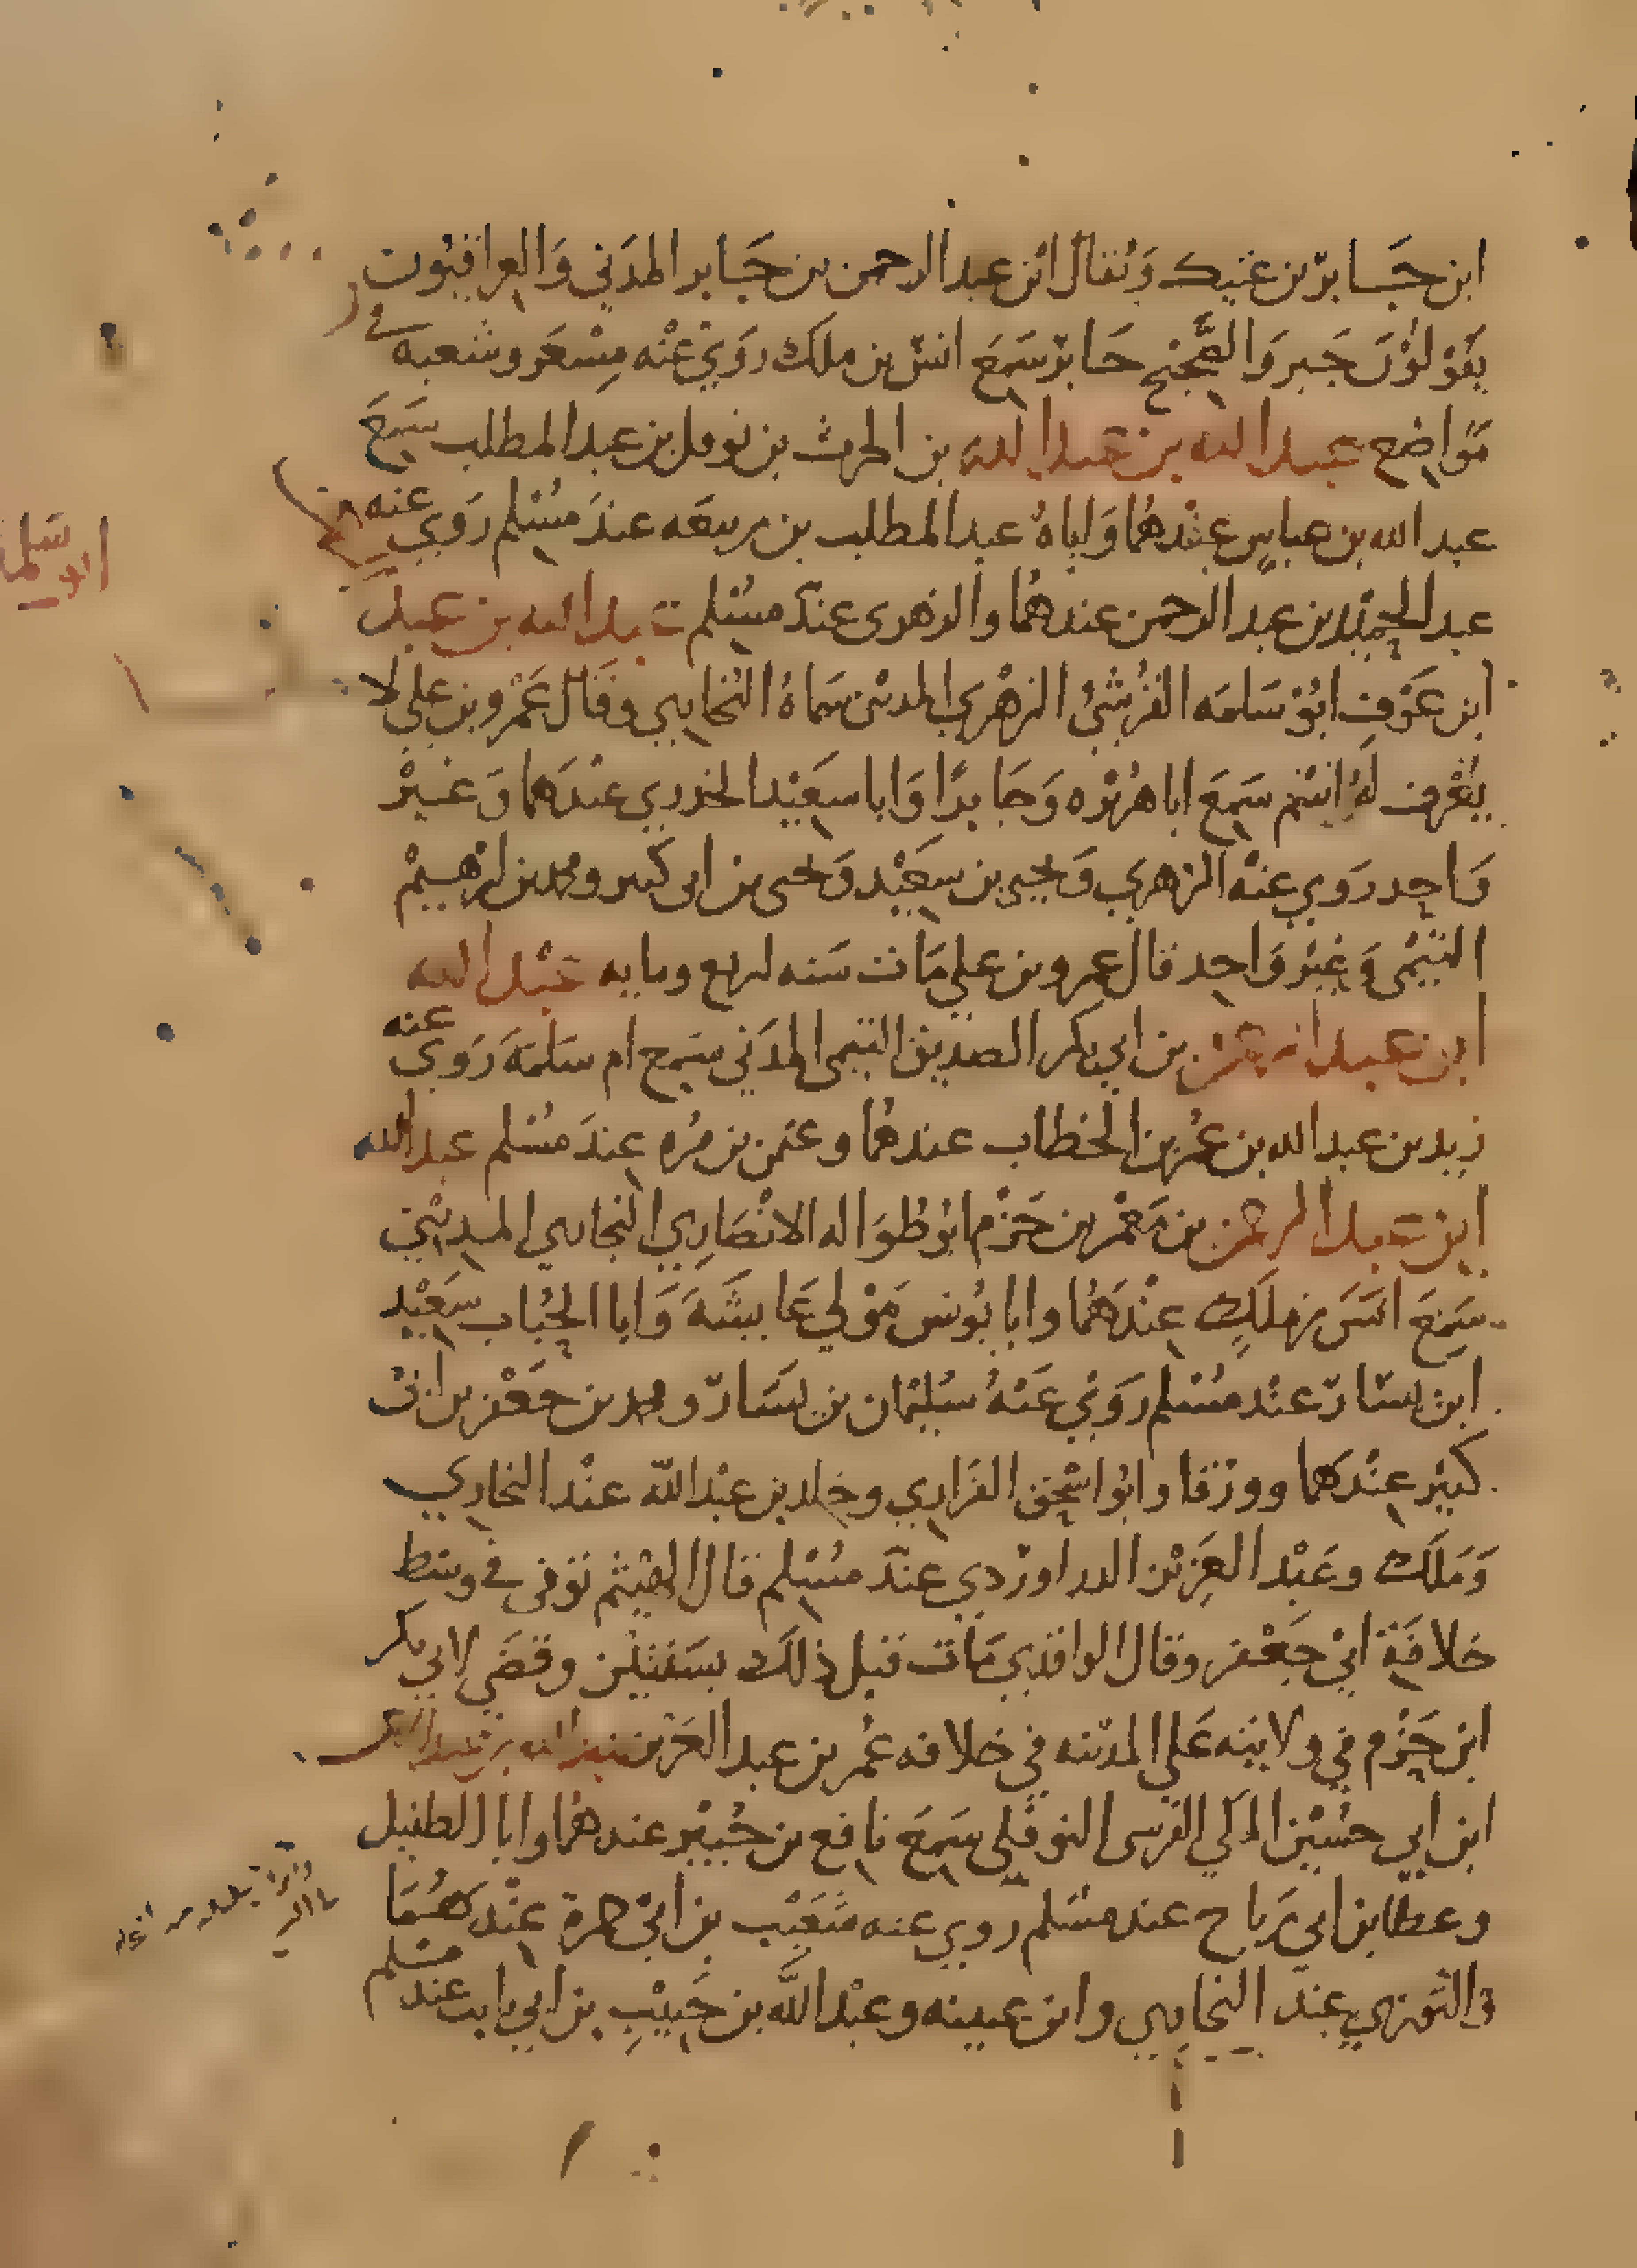 ابن جَابر بن عتيك وَيُقال ابن عبد الرحمن بن جَابر المدَني وَالعراقيُون
يقَولوُنَ جَبر وَالصَّحِيْح جَابر سَمعَ انسَ بن ملك روَيَ عنْه مِسْعَر وشعبه في
مَوَاضع عبد الله بن عبد الله بن الحرث بن نوفل بن عبد المطلب سَمعَ
عبد الله بن عباسٍ عنْدهُما وَاباهُ عبد المطلب بن ربيعَه عندَ مسُلم رَوي عنه
عبد الحميد بن عبد الرحمن عندهمُا والزهرى عندَ مسُلم عبد الله بن عبد
ابن عَوْفِ ابوُ سَلمَه القُرشيُ الزهْري المدني سَماهُ البُخاري وقَالَ عَمْرو بن علي لا
يعُرف لهُ اسْم سَمعَ ابا هرُيْره وَجَابرًا وَابا سَعيْد الخدري عنْدَهما وَغيْر
وَاحِد رَوي عنْه الزهري وَيحيى بن سعيْد وَيحيى بن ابى كثير ومحمد بن ابرهيْم
التيْمى وَغيْر وَاحد قال عمرو بن علي مَات سَنه اربع ومايه عبْد الله
ابن عبد الرحمن بن ابي بكر الصديق التيمى المدَني سَمع ام سَلمَهَ رَوي عنه
زيد بن عبد الله بن عمُر بن الخطاب عندهمُا وعثمن بن مُره عندَ مسُلم عبد الله
ابن عبد الرحمن بن مَعْمر بن حَزْم ابوُ طُوَاله الانْصَاري النجاري المديْني
سَمِعَ انسَ بن ملكِ عنْدَهمُا وابا يوُنس مَوْلي عَايشَهَ وَابا الحُبَاب سَعيْد
ابن يسَار عنْد مسُلم رَوَيَ عَنهُ سُليْمان بن بلال ومحمد بن جعَفر بن ابي
كثيْر عنْدَهما وورْقا وابوُ اسْحق الفزاري وخلد بن عبْد الله عنْد البخاري
وَمَلك وعَبْد العَزيْز الدراورْدي عندَ مسُلم قال الهيْثم توفى في وسَط
خلافَة ابيْ جَعْفر وقال الواقدي مَات قبل ذلك بسَنتيْن وقضَي لابي بكر
ابن حَزْم في ولايته عَلي المديْنه في خلافه عُمر بن عبد العَزيْز عبد الله بن عبد الرحمن
ابن ابي حسُيْن المكي القرشى النوفلي سَمعَ نافع بن جُبيْر عندهمُا وابا الطفيل
وعطا بن ابي رَباح عند مسُلم روي عنه شعَيْب بن ابيْ حمزة عنْدَهمُا
والثوري عندَ البخاري وابن عيينه وعبْد الله بن حَبيْبِ بن ابي ثابت عند مسلم